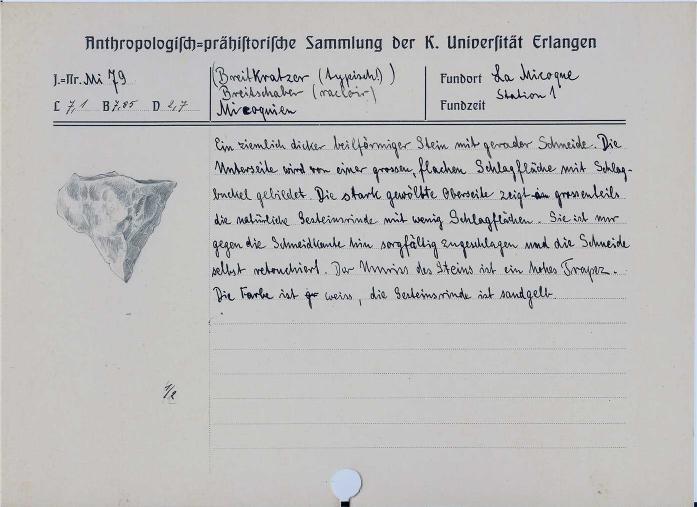 Anthropologisch-prähistorische Sammlung der K. Universität Erlangen
J.-Nr. Mi 79
L 7,1 B 7,85 D 2,7
(Breitkratzer (typisch!))
Breitschaber (racloir)
Micoquien
Fundort La Micoque
Station 1
Fundzeit
Ein ziemlich dicker beilförmiger Stein mit gerader Schneide. Die
Unterseite wird von einer grossen, flachen Schlagfläche mit Schlag-
buckel gebildet. Die stark gewölbte Oberseite zeigt grossenteils
die natürliche Gesteinsrinde mit wenig Schlagflächen. Sie ist nur
gegen die Schneidkante hin sorgfältig zugeschlagen und die Schneide
selbst retouchiert. Der Umriss des Steins ist ein hohes Trapez.
Die Farbe ist weiss, die Gesteinsrinde ist sandgelb.
1/2